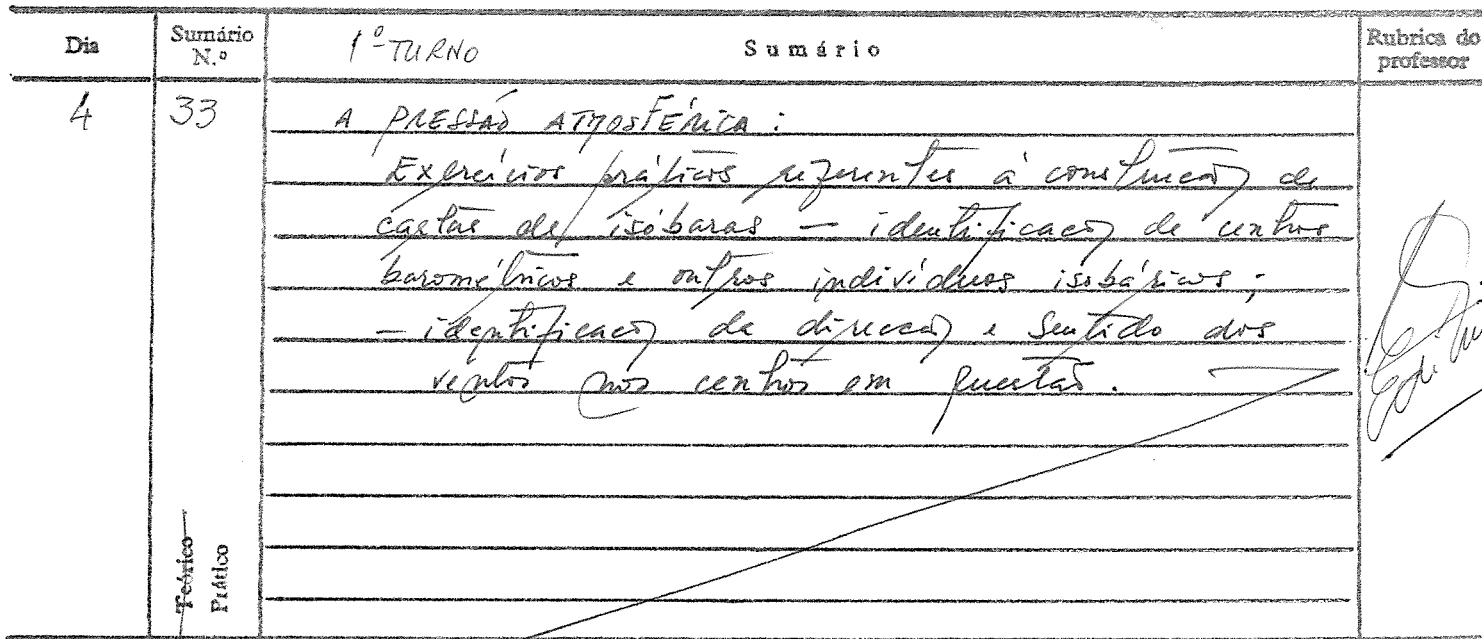 Dia Sumário N.º 1º TURNO Sumário Rubrica do professor
4 33 A PRESSÃO ATMOSFÉRICA :
Exercícios práticos referentes à construção de
cartas de isóbaras — identificação de centros
barométricos e outros indivíduos isobáricos ;
— identificação da direcção e sentido dos
ventos nos centros em questão.
Teórico
Prático